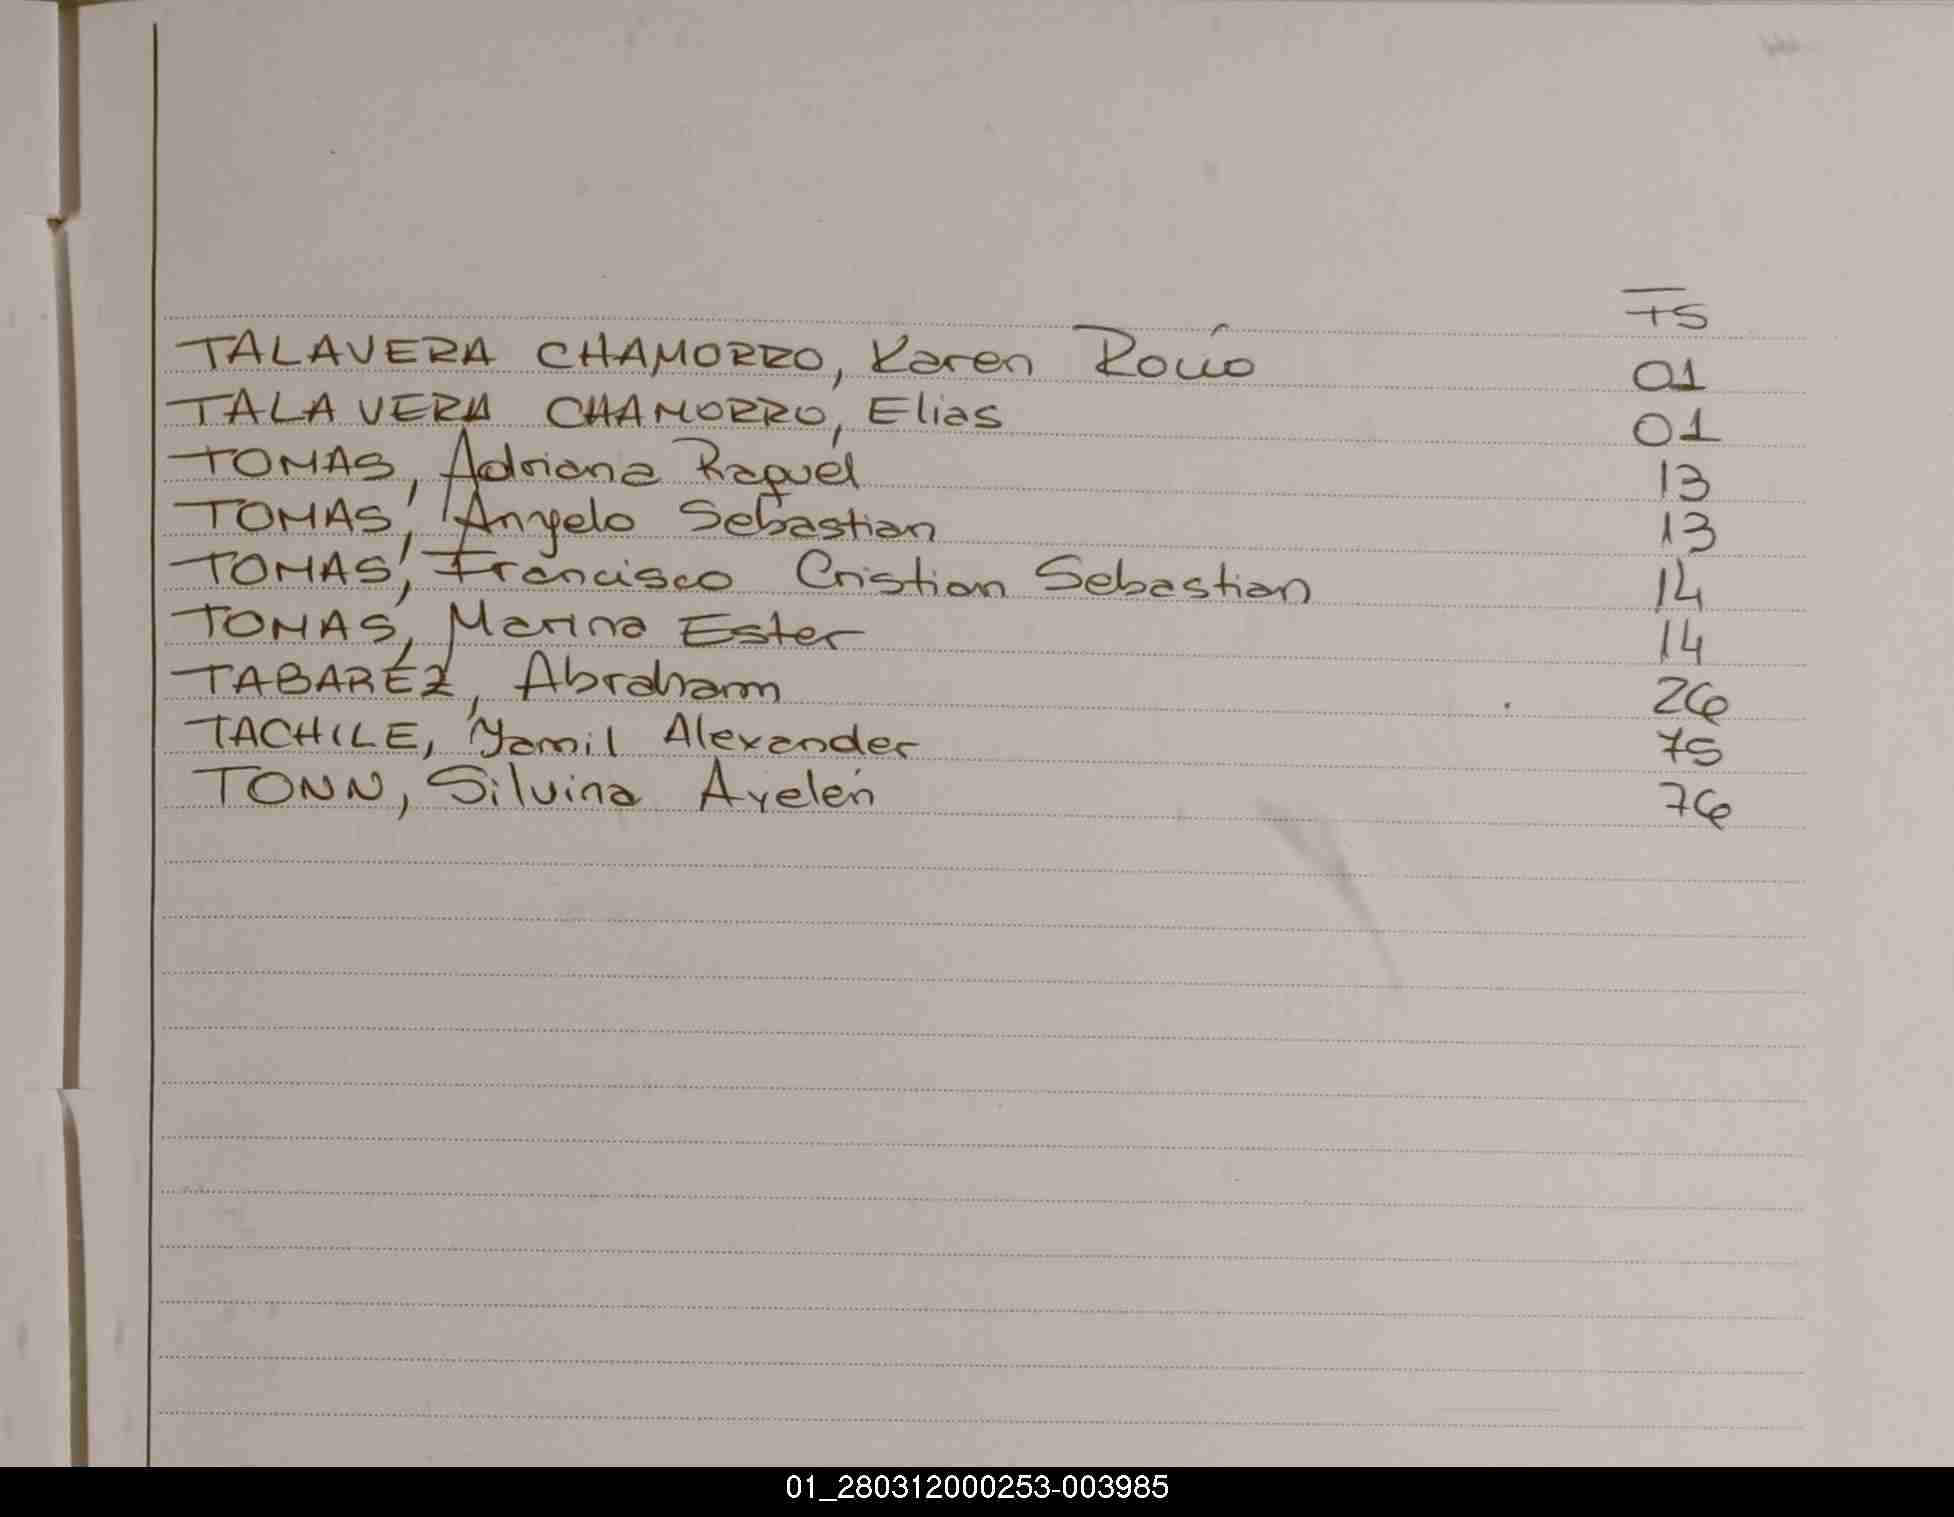 FS
TALAVERA CHAMORRO, Karen Rocío 01
TALAVERA CHAMORRO, Elias 01
TOMAS, Adriana Raquel 13
TOMAS, Angelo Sebastian 13
TOMAS, Francisco Cristian Sebastian 14
TOMAS, Marina Ester 14
TABARÉZ, Abraham 26
TACHILE, Yamil Alexander 75
TONN, Silvina Ayelén 76
01_280312000253-003985